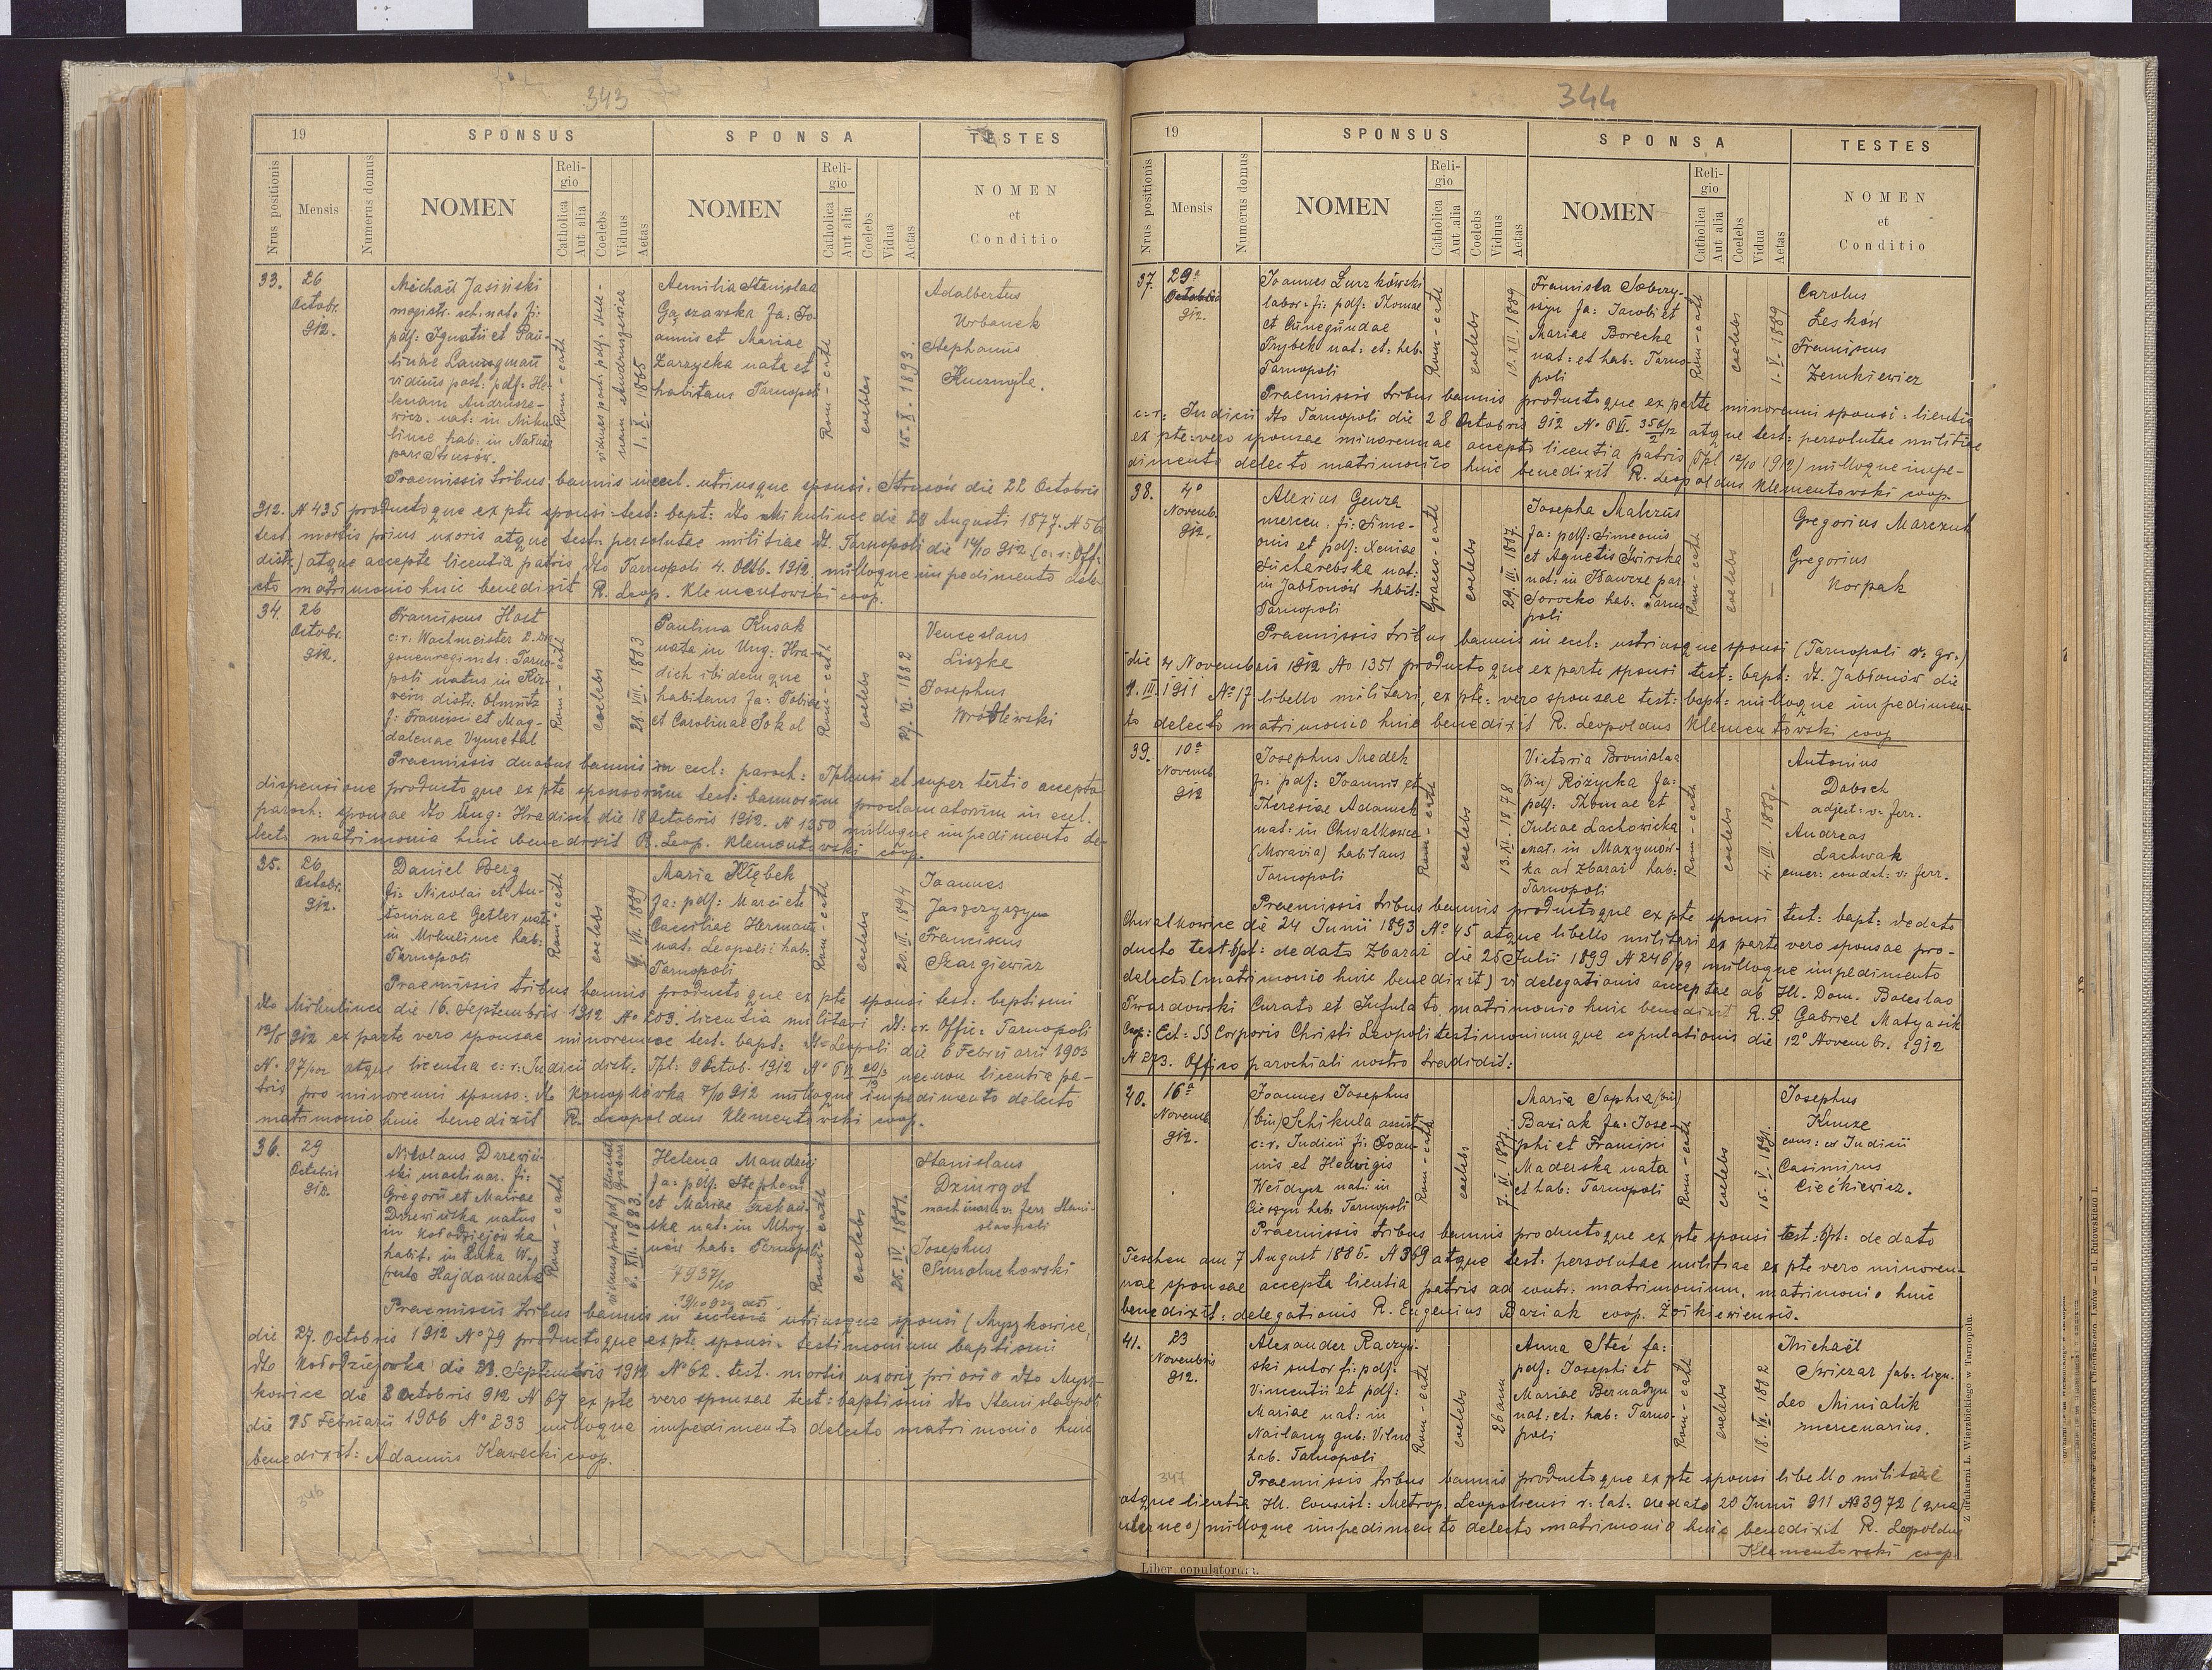 343
19
SPONSUS
SPONSA
TESTES
Nrus positionis
Mensis
Numerus domus
NOMEN
Religio
Catholica
Aut alia
Coelebs
Viduus
Aetas
NOMEN
Religio
Catholica
Aut alia
Coelebs
Vidua
Aetas
NOMEN
et
Conditio
33.
26
Octobr.
912.
Michaël Jasiński
magistr. fi:
pdf: Ignatii et Pau-
linae
viduus post: pdf: He-
lenam Andrusze-
wicz. nat: in Miku-
lince hab: in
Rom-cath
1. X. 1865
Aemilia Stanislaa
Gąszawska fa: Jo-
annis et Mariae
Zarzycka nata et
habitans Tarnopoli
Rom-cath
coelebs
15. X. 1893.
Adalbertus
Urbanek
Stephanus
Praemissis tribus bannis in eccl. utriusque sponsi: Strusów die 22 Octobris
912. N 435 productoque ex pte sponsi test: bapt: dto Mikulince die 28 Augusti 1877. N 56
test. mortis prius uxoris atque test: persolutae militiae dt. Tarnopoli die 14/10 912
atque accepta licentia patris dto Tarnopoli 4. Octb. 1912. nulloque impedimento dete-
cto matrimonio huic benedixit R. Leop. Klementowski coop.
34.
26
Octobr.
912.
Franciscus Hast
c: r: Wachmeister 2.
Tarno-
poli natus in
distr: Olmütz
f: Francisci et Mag-
dalenae Vymetal
Rom-cath
coelebs
28. VIII. 1883
Paulina Husak
nata in Ung: Hra-
disch ibidemque
habitans fa: Tobiae
et Carolinae Sokol
Rom-cath
coelebs
29. VI. 1882
Venceslaus
Liszke
Josephus
Wróblewski
Praemissis duobus bannis in eccl: paroch: Tplensi et super tertio accepta
dispensione productoque ex pte sponsorum test: bannorum proclamatorum in eccl.
paroch: sponsae dto Ung: Hradisch die 18 Octobris 1912. N 1350 nulloque impedimento de-
tecto matrimonio huic benedixit R. Leop. Klementowski coop.
35.
26
Octobr.
912.
Daniel Berg
fi: Nicolai et An-
toninae Getler nat:
in Mikulince hab:
Tarnopoli
Rom-cath
coelebs
VII. 1889
Maria Kłębek
fa: pdf: Marci et
Caeciliae Herman
nat: Leopoli: hab:
Tarnopoli
Rom-cath
coelebs
20. III. 1894
Joannes
Jaszczyszyn
Franciscus
Skargiewicz
Praemissis tribus bannis productoque ex pte sponsi test: baptismi
dto Mikulince die 16. Septembris 1912 No 203. licentia militari dt: cr. Offic: Tarnopoli
912 ex parte vero sponsae minorennae test: bapt: dt= Leopoli die 6 Februarii 1903
No 97/902 atque licentia c: r: Judicii distr: Tpl: 9 Octob. 1912 necnon licentia pa-
tris pro minorenni sponso: dto Konopkówka 7/10 912 nulloque impedimento detecto
matrimonio huic benedixit R. Leopoldus Klementowski coop.
36.
29
Octobris
912.
Nikolaus Drzewiń-
ski machinar. fi:
Gregorii et Mariae
Drzewińska natus
in Kołodziejówka
habit. in Łuka W.
Hajdamacha
Rom-cath
8. XII. 1883.
Helena Mandzij
fa: pdf: Stephani
et Mariae
nat: in
hab: Tarnopoli
7937/20
Rom-cath
coelebs
26. IV. 1881.
Stanislaus
Dziurgot
machinar: v: ferr Stani-
slaopoli
Josephus
Smoluchowski
Praemissis tribus bannis in ecclesia utriusque sponsi (Myszkowice,
die 27. Octobris 1912 No 79 productoque ex pte sponsi testimonium baptismi
dto Kołodziejówka die 23. Septembris 1912 No 62. test. mortis uxoris prioris dto Mysz-
kowice die 8 Octobris 912 N 67 ex pte vero sponsae test: baptismi dto Stanislaopoli
die 15 Februarii 1906 No 233 nulloque impedimento detecto matrimonio huic
benedixit: Adamus Kawecki coop.
346
344
19
SPONSUS
SPONSA
TESTES
Nrus positionis
Mensis
Numerus domus
NOMEN
Religio
Catholica
Aut alia
Coelebs
Viduus
Aetas
NOMEN
Religio
Catholica
Aut alia
Coelebs
Vidua
Aetas
NOMEN
et
Conditio
37.
29a
Octobris
912.
Joannes Żurżkówski
labor: fi: pdf: Thomae
et Cunegundae
Przybek nat: et: hab:
Tarnopoli
Rom-cath
coelebs
19. XII. 1889
Francisca Soberzy-
szyn fa: Jacobi et
Mariae Borecka
nat: et hab: Tarno-
poli
Rom-cath
coelebs
1. V. 1889
Carolus
Żesków
Franciscus
Zenkiewicz
Praemissis tribus bannis productoque ex parte minorenni sponsi: licentia
c: r: Judicii dto Tarnopoli die 28 Octobris 912 No PVI. 358/12 atque test: persolutae militiae
ex pte: vero sponsae minorennae accepta licentia patris (Tpl 12/10 912) nulloque impe-
dimento detecto matrimonio huic benedixit R. Leopoldus Klementowski coop.
38.
4a
Novemb.
912.
Alexius Genza
mercen: fi: Sime-
onis et pdf: Xeniae
Sucharebska nat:
in Jabłonów habit:
Tarnopoli
Graeco-cath
coelebs
29. III. 1887.
Josepha Malczus
fa: pdf: Simeonis
et Agnetis Świrska
nat: in Iławcze par:
Sorocko hab: Tarno-
poli
Rom-cath
coelebs
Gregorius Marczuk
Gregorius
Korpak
Praemissis tribus bannis in eccl: utriusque sponsi (Tarnopoli r. gr.)
die 4 Novembris 1912 No 1351 productoque ex parte sponsi test: bapt: dt. Jabłonów die
4. III. 1911 No 17 libello militari, ex pte: vero sponsae test: bapt: nulloque impedimen-
to detecto matrimonio huic benedixit R. Leopoldus Klementowski coop
39.
10a
Novemb.
912
Josephus Medek
fi: pdf: Joannis et
Theresiae Adamek
nat: in Chwalkowice
(Moravia) habitans
Tarnopoli
Rom-cath
coelebs
13. XI. 1878
Victoria Bronislaa
(bin) Różycka fa:
pdf: Thomae et
Juliae Lachowicka
nat: in Maxymów-
ka ad Zbaraż hab:
Tarnopoli
Rom-cath
coelebs
4. III. 1887.
Antonius
Dobsch
adject: v: ferr.
Andreas
Lachwak
emer: condut: v: ferr.
Praemissis tribus bannis productoque ex pte sponsi test: bapt: de dato
Chwalkowice die 24 Junii 1893 No 45 atque libello militari ex parte vero sponsae pro-
ducto test: bpt: de dato Zbaraż die 25 Julii 1899 N 246/99 nulloque impedimento
detecto (matrimonio huic benedixit) vi delegationis acceptae ab Ill. Dom. Boleslao
Twardowski Curato et Infulato, matrimonio huic benedixit R. P. Gabriel Matyasik
Coop: Eccl: SS Corporis Christi Leopoli testimoniumque copulationis die 12a Novembr. 1912
N 273. Officio parochiali nostro tradidit:
40.
16a
Novemb.
912.
Joannes Josephus
(bin) Schikula assist
c: r. Judicii fi: Joan-
nis et Hedwigis
Weidycz nat: in
Cieszyn hab: Tarnopoli
Rom-cath
coelebs
1877.
Maria Sophia (bin)
Baziak fa: Jose-
phi et Francisci
Maderska nata
et hab: Tarnopoli
Rom-cath
coelebs
15. V. 1891.
Josephus
Kunze
cons: cr Judicii
Casimirus
Ciećkiewicz.
Praemissis tribus bannis productoque ex pte sponsi test: bpt: de dato
Teschen am 7 August 1885 N 369 atque test: persolutae militiae ex pte vero minoren-
nae sponsae accepta licentia patris ad contr: matrimonium, matrimonio huic
benedixit: delegationis R. Eugenius Baziak coop. Żółkiewiensis.
41.
23
Novembris
912.
Alexander Raczyń-
ski sutor fi: pdf:
Vincentii et pdf:
Mariae nat: in
Nailany gub: Vilno
hab. Tarnopoli
Rom-cath
coelebs
26 ann
Anna Steć fa:
pdf: Josephi et
Mariae Bernadyn
nat: et: hab: Tarno-
poli
Rom-cath
coelebs
18. VI. 1882
Michaël
Świczar fab: lign.
Leo Minialik
mercenarius.
347
Praemissis tribus bannis productoque ex pte sponsi libello militari
atque licentia Ill. Consist: Metrop. Leopoliensi r: lat: de dato 20 Junii 911 No 3972
nulloque impedimento detecto matrimonio huic benedixit R. Leopoldus
Klementowski coop
Liber copulatorum.
Z drukarni L. Wierzbickiego w Tarnopolu.